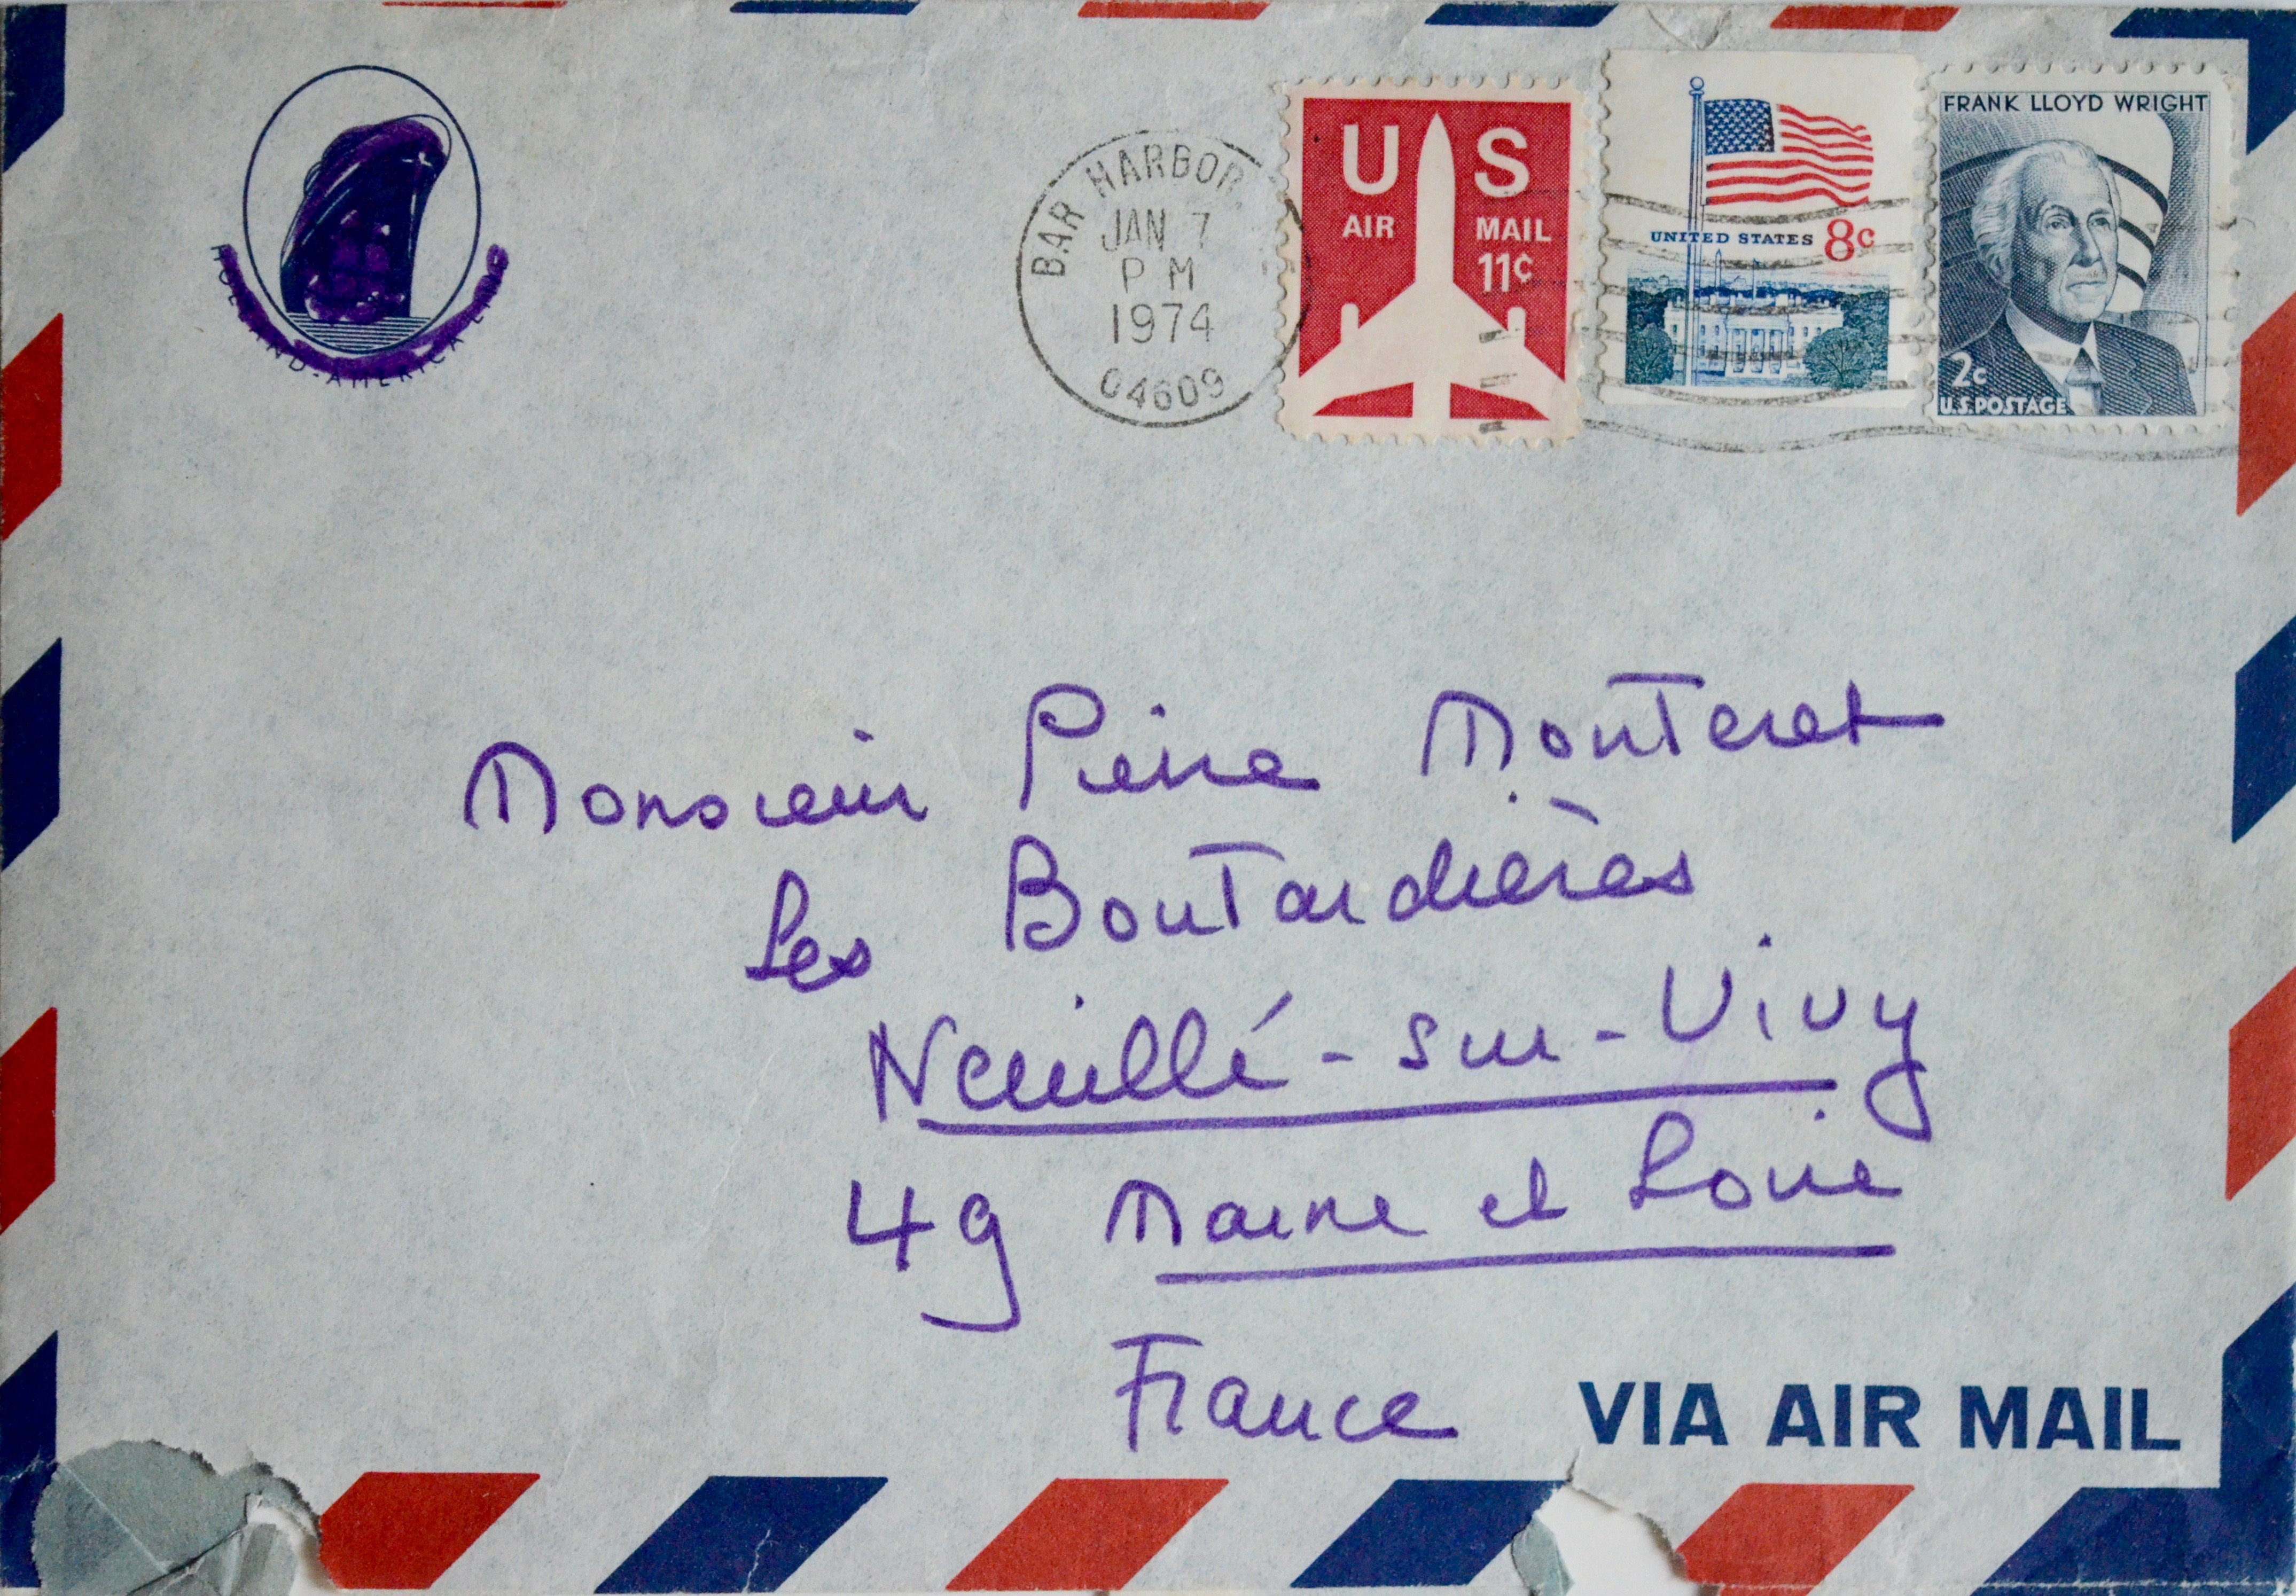 HOLLAND-AMERICA LINE
BAR HARBOR
JAN 7
PM
1974
04609
US
AIR MAIL
11¢
UNITED STATES 8c
FRANK LLOYD WRIGHT
2c
U.S. POSTAGE
Monsieur Pierre Monteret
Les Boutardières
Neuillé-sur-Vivy
49 Maine et Loire
France
VIA AIR MAIL